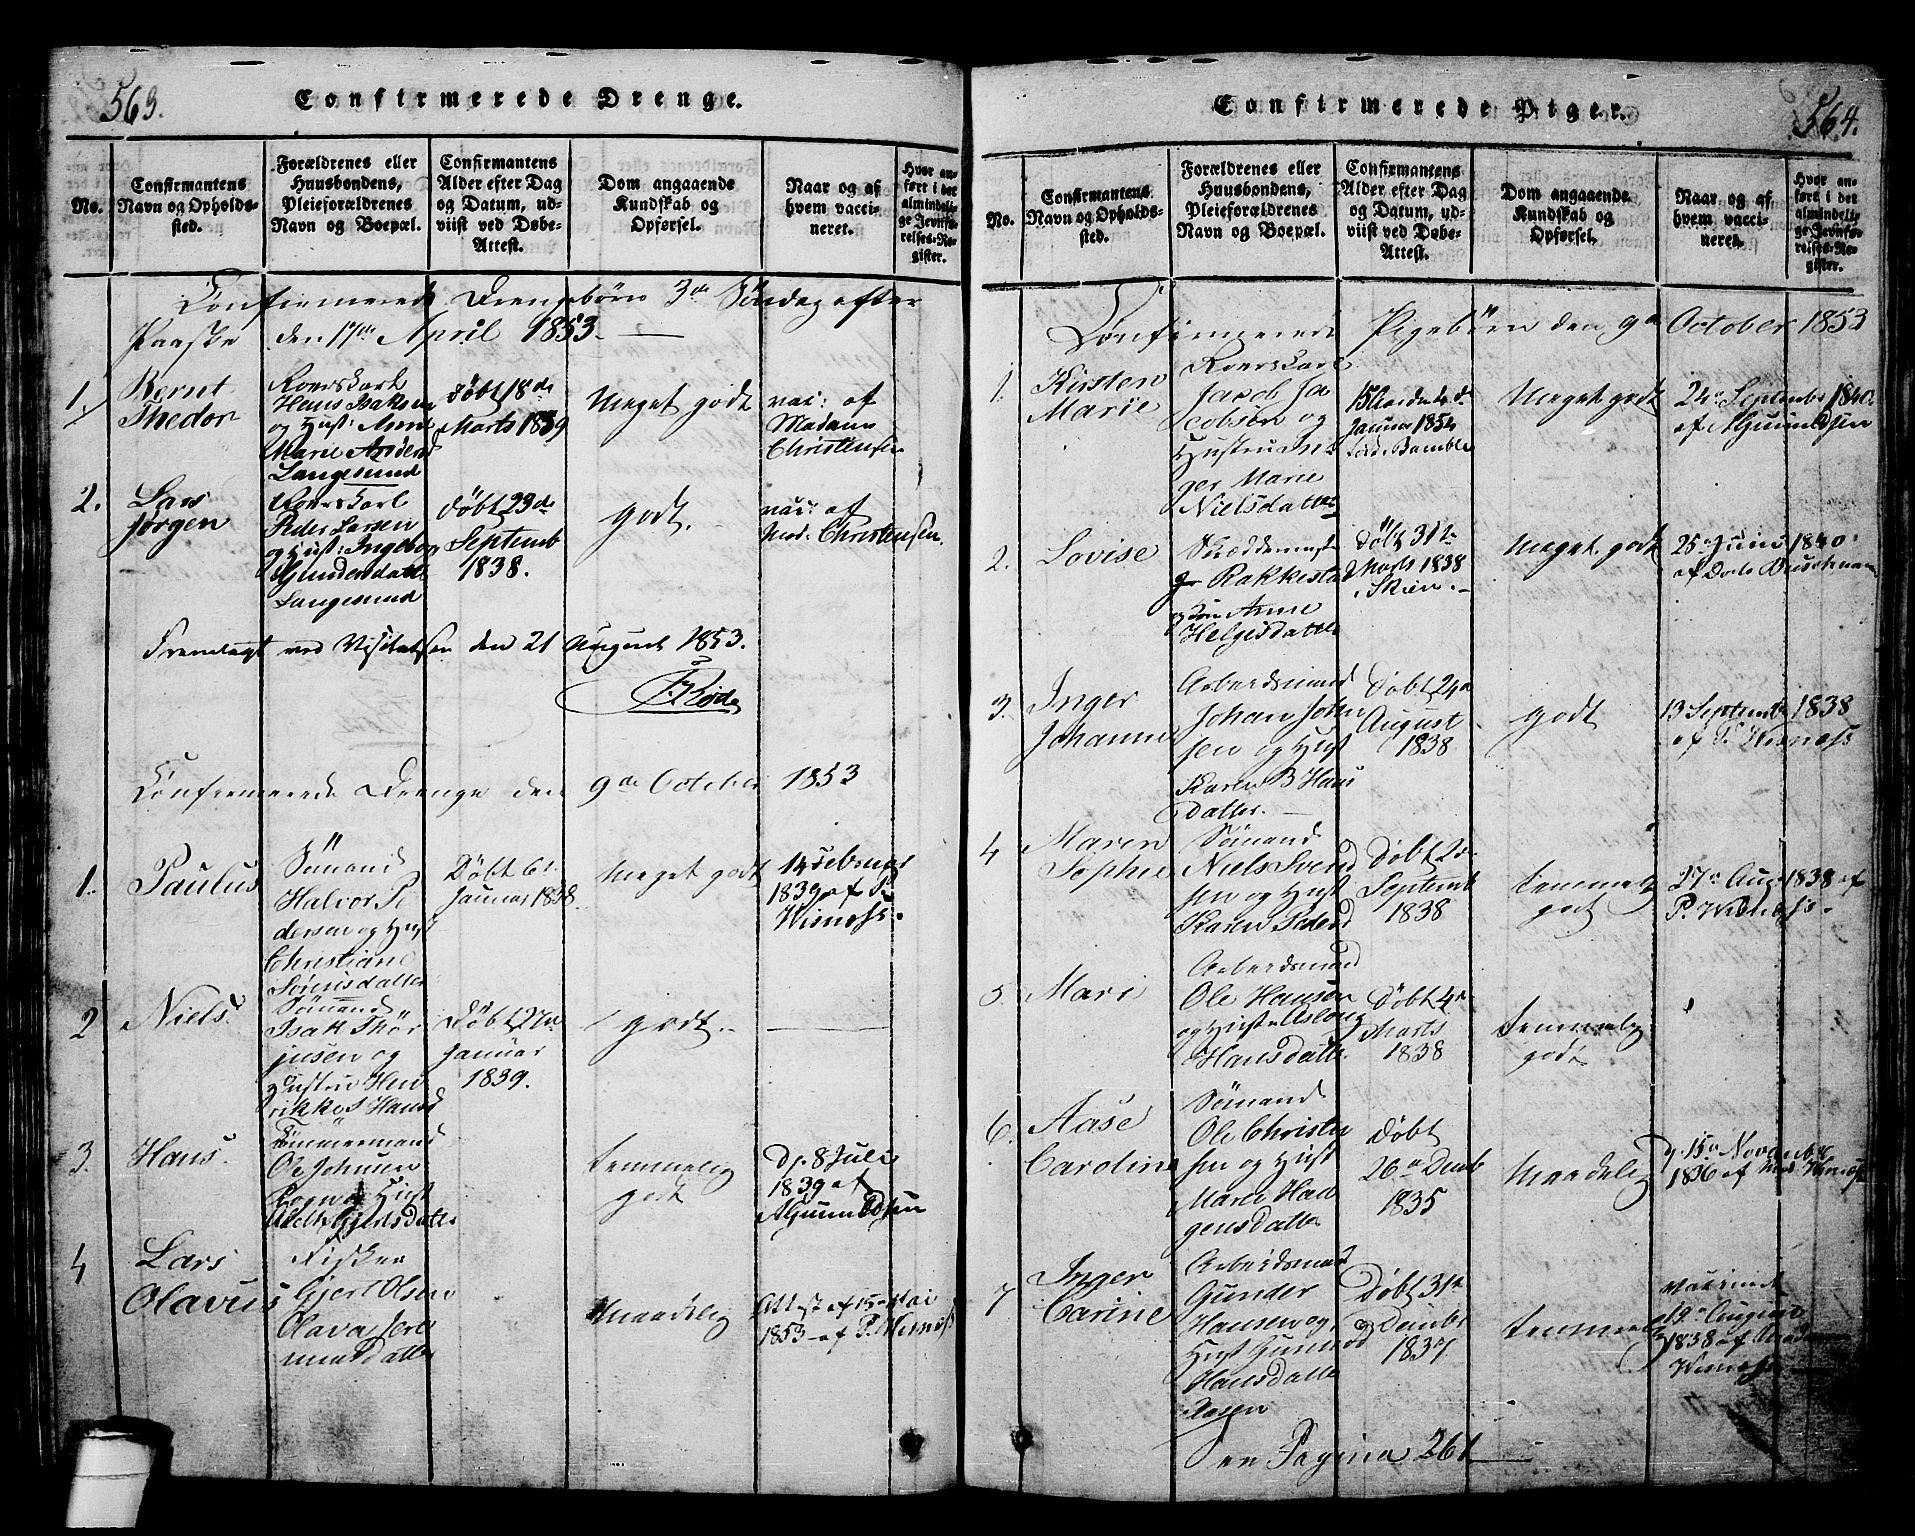 563.
Confirmerede Drenge.
No.
Confirmantens
Navn og Opholds-
sted.
Forældrenes eller
Huusbondens,
Pleieforældrenes
Navn og Boepæl.
Confirmantens
Alder efter Dag
og Datum, ud-
viist ved Døbe-
Attest.
Dom angaaende
Kundskab og
Opførsel.
Naar og af
hvem vacci-
neret.
Hvor an-
ført i det
almindeli-
ge Jevnfø-
relses-Re-
gister.
Confirmerede Drengebørn 3de Søndag efter
Paaske den 17de April 1853.
1.
Bernt
Thedor
Roerskarl
Hans Isaksen
og Hust: Anne
Marie Andersd
Langesund
Døbt 18de
Marts 1839
Meget godt
vac: af
Madame
Christensen
2.
Lars
Jørgen
Roerskarl
Peder Larsen
og Hust: Ingebor
Gundersdatte
Langesund
Døbt 23de
Septemb
1838.
godt.
vac: af
Mad. Christensen
Fremlagt ved Visitatsen den 21 August 1853.
Confirmerede Drenge den 9de October 1853
1.
Paulus
Sømand
Halvor Pe
dersen og Hust
Christiane
Sørensdatter
Døbt 6te
Januar 1838
Meget godt
14 Februar
1839 af P.
Wisness.
2
Niels
Sømand
Isak Thor
jusen og
Hustru Hen
rikke S Hansd
Døbt 27de
Januar
1839.
godt.
3.
Hans
Tømmermand
Ole Johnsen
og Hust
Gjertsdatter
temmelig
godt
D. 8 Juli
1839 af
AGumundsen
4
Lars
Olavus
Fisker
Gjert Olsen
Olava Jere
miasdatter
Maadelig
Attest af 15 Mai
1853 af P. Wisness
564.
Confirmerede Piger.
No.
Confirmantens
Navn og Opholds-
sted.
Forældrenes eller
Huusbondens,
Pleieforældrenes
Navn og Boepæl.
Confirmantens
Alder efter Dag
og Datum, ud-
viist ved Døbe-
Attest.
Dom angaaende
Kundskab og
Opførsel.
Naar og af
hvem vacci-
neret.
Hvor an-
ført i det
almindeli-
ge Jevnfø-
relses-Re-
gister.
Confirmerede Pigebørn den 9de October 1853
1.
Kirsten
Marie
Roerskarl
Jacob Ja
cobsen og
Hustru In
ger Marie
Nielsdatter
15 Aar
Januar
Bamble
Meget godt
24de Septembr 1840.
af AGumundsen
2.
Lovise
Skræddermest
Rakkesta
og Anne
Helgesdatter
Døbt 31te
Marts 1838
i Skien.
Meget godt
25de Juni 1840.
af
3.
Inger
Johanne
Arbeidsmand
Johan John
sen og Hust
Karen B Hans
datter.
Døbt 24de
August
1838
godt
13 Septembr 1838
af P. Wisness
4
Maren
Sophie
Sømand
Niels Svend
sen og Hust
Karen
Døbt 2de
Septemb
1838
temmelig
godt
27de Aug 1838 af
P. Wisness.
5
Mari
Arbeidsmand
Ole Hansen
og Hust Aslaug
Hansdatte
Døbt 4de
Marts
1838
temmelig
godt
6.
Aase
Caroline
Sømand
Ole Christen
sen og Hust
Maren Haa
gensdatter
Døbt
26de Decmb
1835
Maadelig
15de November
1836 af Mad
7
Inger
Carine
Arbeidsmand
Gunder
Hansen og
Hust Gunild
Hansdatte
Aasen
Døbt 31te
Decmbr
1837
temmelig
vaccineret
19de August
1838 af Madame
Wisness
en Pagina 261